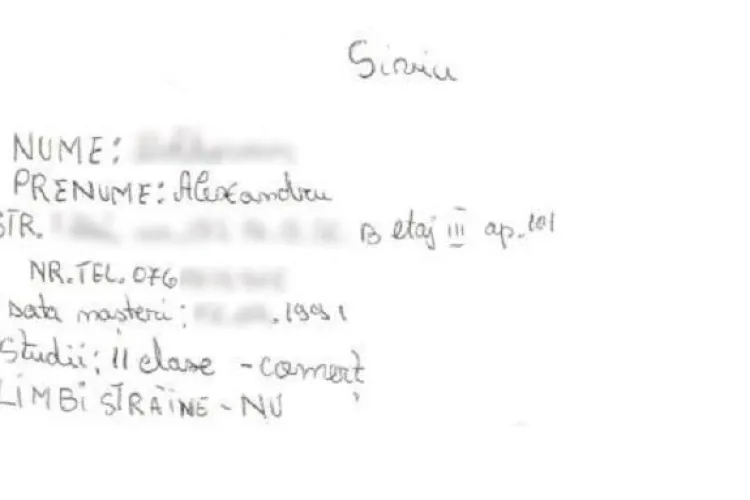 Siviu
NUME:
PRENUME: Alexandru
STR. B etaj III ap. 101
NR. TEL. 076
Data nașterii: .1991
Studii: 11 clase - comerț
LIMBI STRĂINE - NU